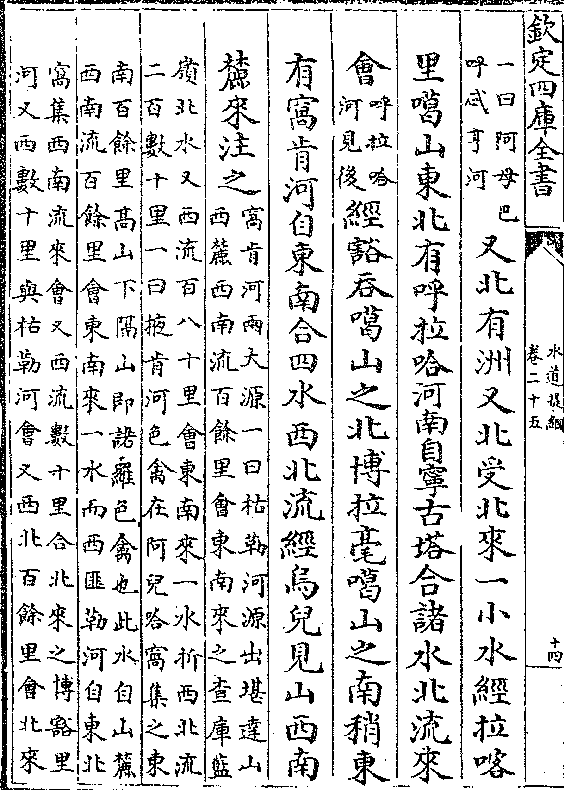 欽定四庫全書
水道提綱
卷二十五
十四
一曰阿母巴
呼忒亨河
又北有洲又北受北來一小水經拉喀
里噶山東北有呼拉哈河南自寧古塔合諸水北流來
會
呼拉哈
河見後
經豁吞噶山之北博拉毫噶山之南稍東
有窩肯河自東南合四水西北流經烏兒見山西南
麓來注之
窩肯河兩大源一曰枯勒河源出堪達山
西麓西南流百餘里會東南來之查庫藍
嶺北水又西流百八十里會東南來一水折西北流
二百數十里一曰掖肯河色禽在阿兒哈窩集之東
南百餘里高山下隔山即諾羅色禽也此水自山麓
西南流百餘里會東南來一水而西匪勒河自東北
窩集西南流來會又西流數十里合北來之博豁里
河又西數十里與枯勒河會又西北百餘里會北來